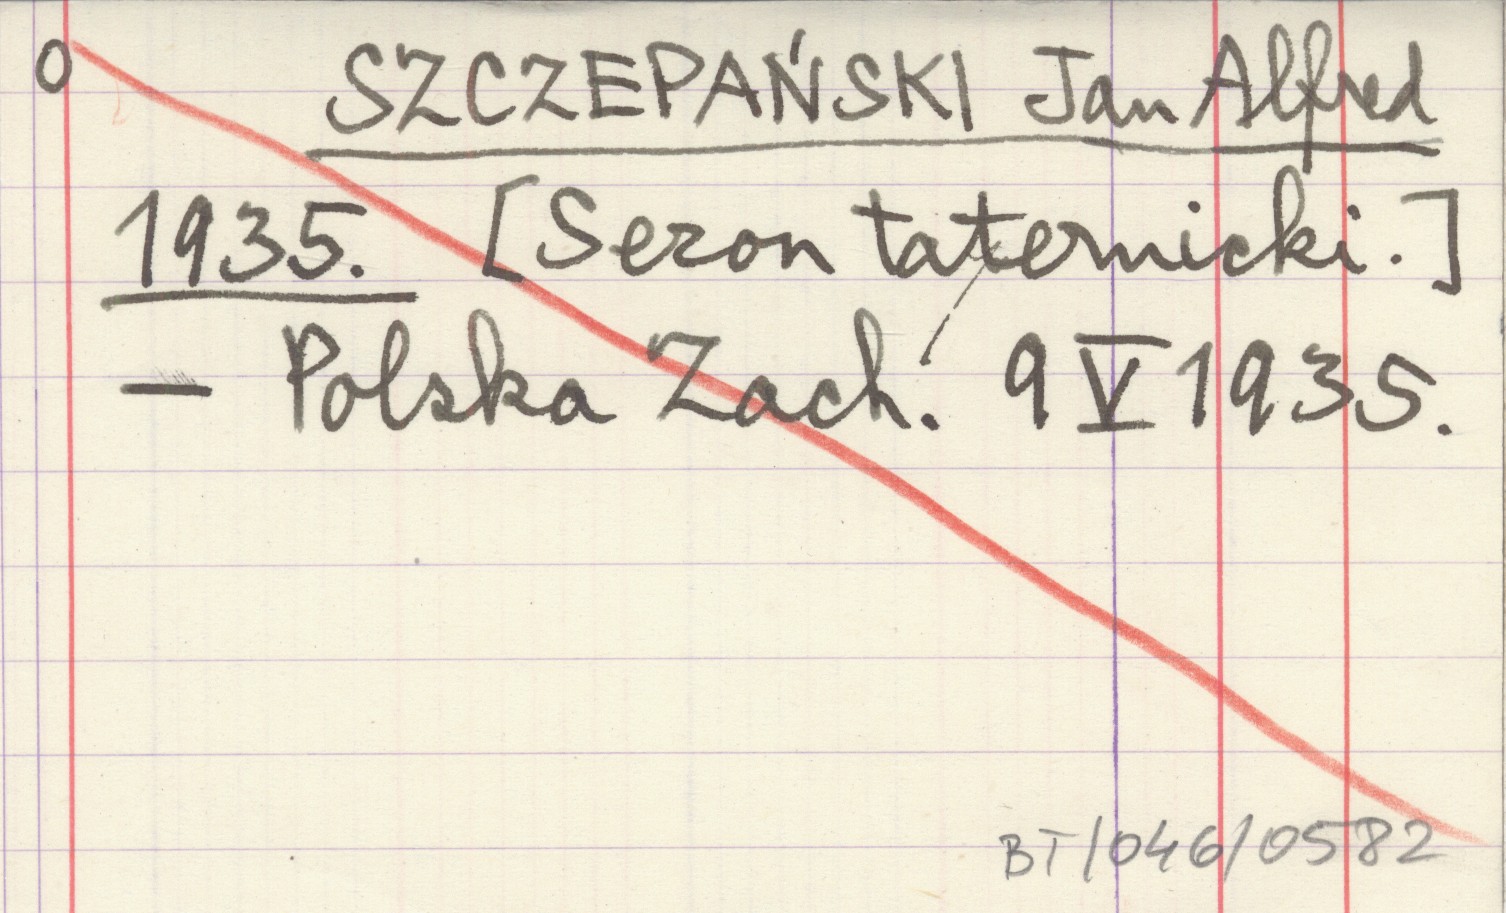 0 SZCZEPAŃSKI Jan Alfred
1935. [Sezon taternicki.]
— Polska Zach. 9 V 1935.
BT/046/0582